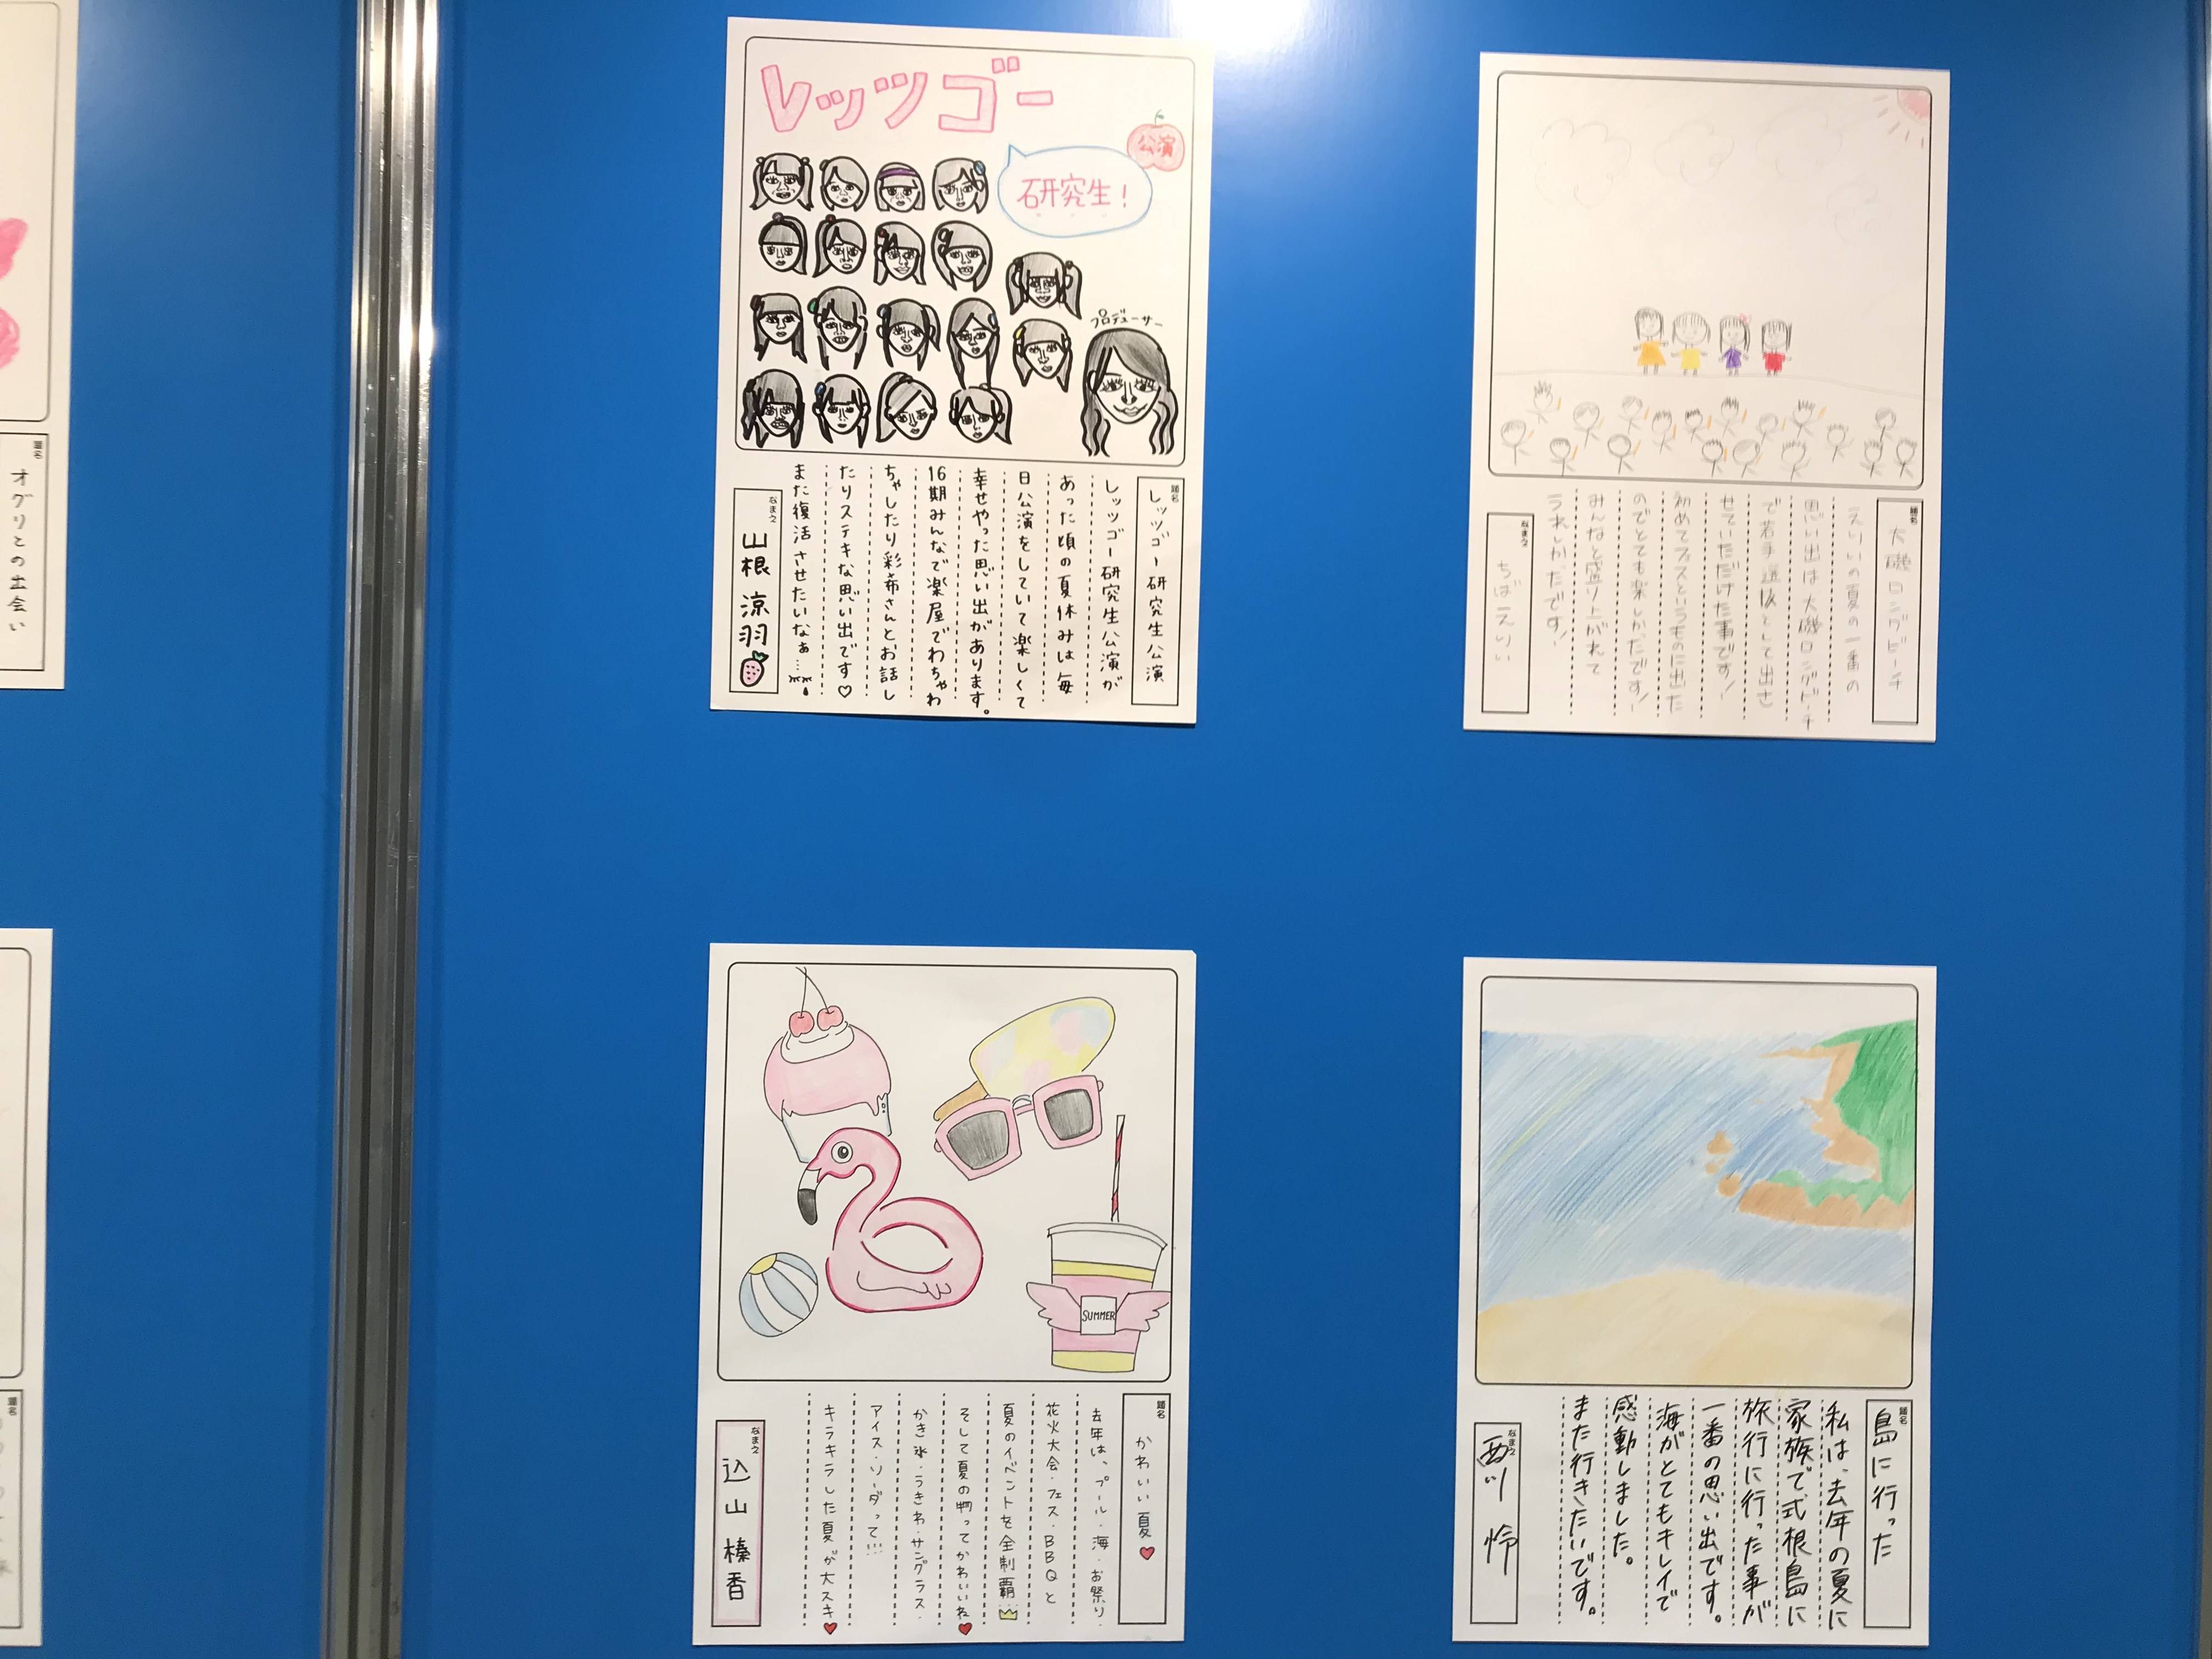 レッツゴー
公演
研究生!
プロデューサー
題名
レッツゴー研究生公演
レッツゴー研究生公演が
あった頃の夏休みは毎
日公演をしていて楽しくて
幸せやった思い出があります。
16期みんなで楽屋でわちゃわ
ちゃしたり彩希さんとお話し
たりステキな思い出です♡
また復活させたいなぁ…
なまえ
山根 涼羽
題名
大磯ロングビーチ
えりいの夏の一番の
思い出は大磯ロングビーチ
で若手選抜として出さ
せていただけた事です!
初めてフェスというものに出た
のでとても楽しかったです!
みんなと盛り上がれて
うれしかったです!
なまえ
ちばえりい
SUMMER
題名
かわいい夏♥
去年は、プール・海・お祭り・
花火大会・フェス・BBQと
夏のイベントを全制覇
そして夏の物ってかわいいね♥
かき氷・うきわ・サングラス・
アイス・ソーダって!!!
キラキラした夏が大スキ♥
なまえ
込山 榛香
題名
島に行った
私は、去年の夏に
家族で式根島に
旅行に行った事が
一番の思い出です。
海がとてもキレイで
感動しました。
また行きたいです。
なまえ
西川 怜
題名
オグリとの出会い
題名